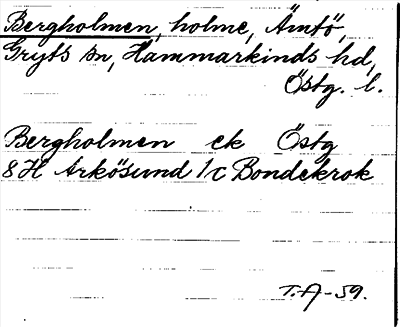 Bergholmen, holme, Ämtö,
Gryts sn, Hammarkinds hd,
Östg. l.
Bergholmen ek Östg
8H Arkösund 1/c Bondekrok
T.A-59.